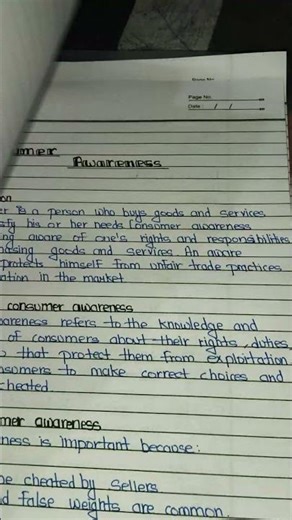 Page No.
Date: / /
umer
Awareness
on
er is a person who buys goods and services
sfy his or her needs Consumer awareness
ng aware of one's rights and responsibilities
hasing goods and services. An aware
protects himself from unfair trade practices
ation in the market
consumer awareness
wareness refers to the knowledge and
of consumers about their rights, duties,
s that protect them from exploitation
nsumers to make correct choices and
cheated.
mer awareness
ness is important because:
be cheated by sellers
d false weights are common.